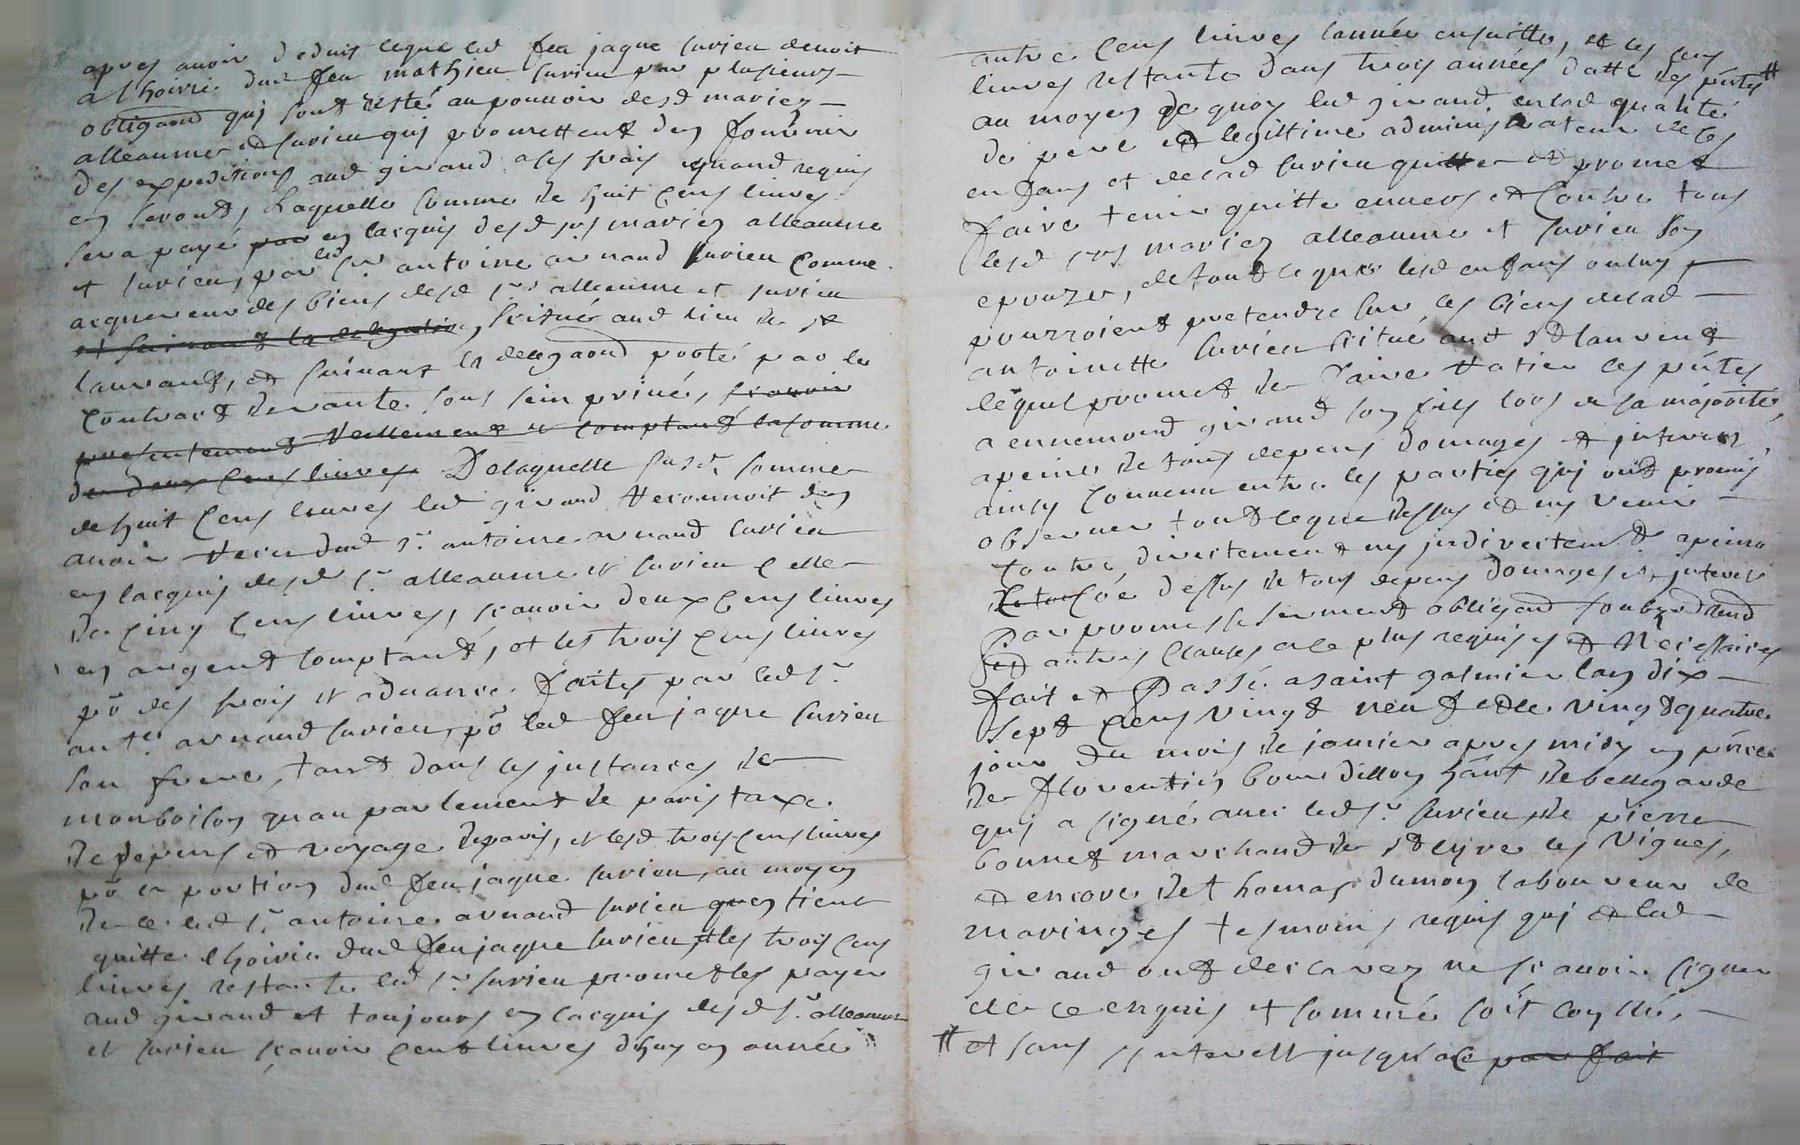 apres avoir deduit ceque led feu jaque Surieu devoit
a lhoirie dud feu mathieu Surieu par plusieurs
obligaons quj sont resté au pouvoir desd mariez
alleaume et Surieu quj promettent den fournir
des expeditions aud giraud a ses frais quand requis
en seront, Laquelle somme de huit cens livres
sera payé par en lacquis desd srs mariez alleaume
et Surieu, par led sr antoine arnaud Surieu comme
acquereur des biens desd srs alleaume et Surieu
et suivant la delegation, scitués aud lieu de st
laurand, et suivant la delegaon porté par le
contract devante sous sein privé, scavoir
presentement reellement et comptant la somme
de deux cens livres Delaquelle susde somme
de huit cens livres led giraud reconnoit den
avoir receu dud sr antoine arnaud Surieu
en lacquis desd sr alleaume et Surieu celle
de cinq cens livres, scavoir deux cens livres
en argent comptant, et les trois cens livres
pr des frais et advance faites par led sr
ante arnaud Surieu, pr led feu jaque Surieu
son frere, tant dans les instances de
monboison quau parlement de paris taxe
de depens et voyage de paris, et lesd trois cens livres
pr la portion dud feu jaque Surieu, au moyen
de ce led sr antoine arnaud Surieu quen tient
quitte lhoirie dud feu jaque Surieu, et les trois cens
livres restante led sr Surieu promet les payer
aud giraud et toujours en lacquis desd sr alleaume
et Surieu scavoir cent livres dhuy en année
autre cens livres lannée ensuitte, et les cens
livres restante dans trois années datte des pntes #
au moyen de quoy led giraud en lad qualité
de pere et legittime administrateur de ses
enfans et delad Surieu quitte et promet
faire tenir quitte envers et contre tous
lesd srs mariez alleaume et Surieu son
epouze, de tout ce que lesd enfans ont ou
pourroient pretendre sur les biens delad
antoinette Surieu scitué aud st laurent
lequel promet de faire ratier les pntes
a ennemond girand son fils lors de sa majorité,
apeine de tous depens domages et interest
ainsy convenu entre les parties quj ont promis
observer tout ceque dessus et ny venir
contre directement ny indirectemt apeine
que dessus de tous depens domages et interest
Par promesse serment obligaon
autres clauses ace plus requises et Necessaires
fait et Passé a saint galmier lan dix
sept cens vingt neuf et le vingt quatre
jour du mois de janvier apres midy en pnce
de florentin bourdillon hant de bellegarde
quj a signé avec led sr Surieu, de pierre
bonnet marchand de st Cyre les Vignes,
et encore de thomas dumon laboureur de
maringes tesmoins requis quj et led
giraud ont declarez ne scavoir signer
de ce enquis et sommé soit conllé,
# et sans interest jusqu'a ce par fait